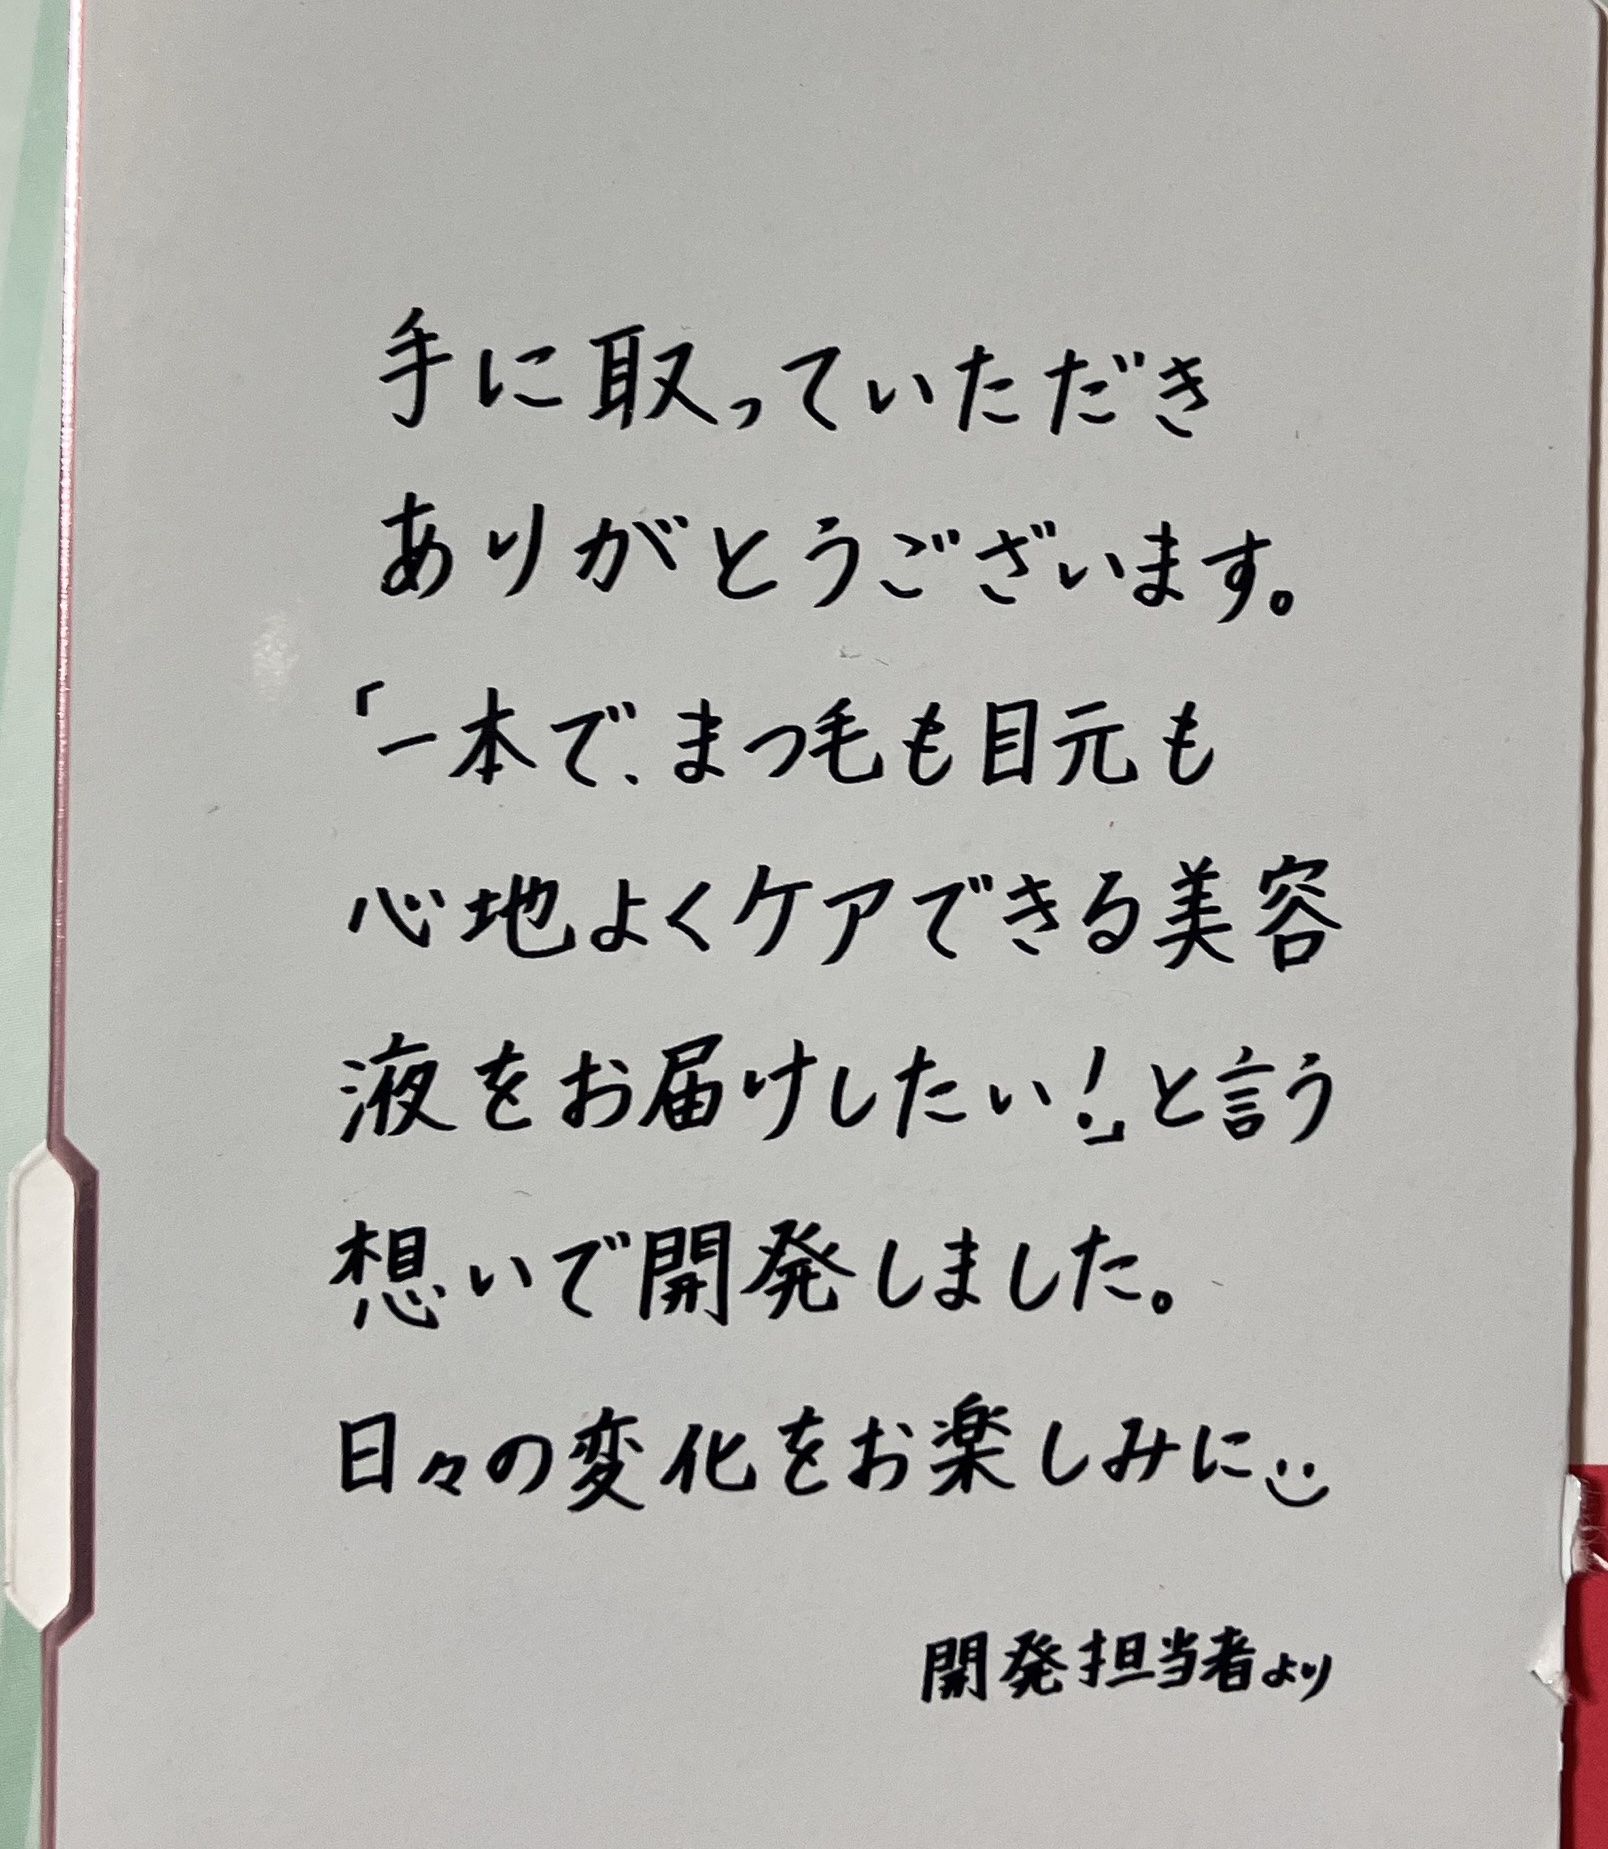 手に取っていただき
ありがとうございます。
「一本で、まつ毛も目元も
心地よくケアできる美容
液をお届けしたい!」と言う
想いで開発しました。
日々の変化をお楽しみに
開発担当者より